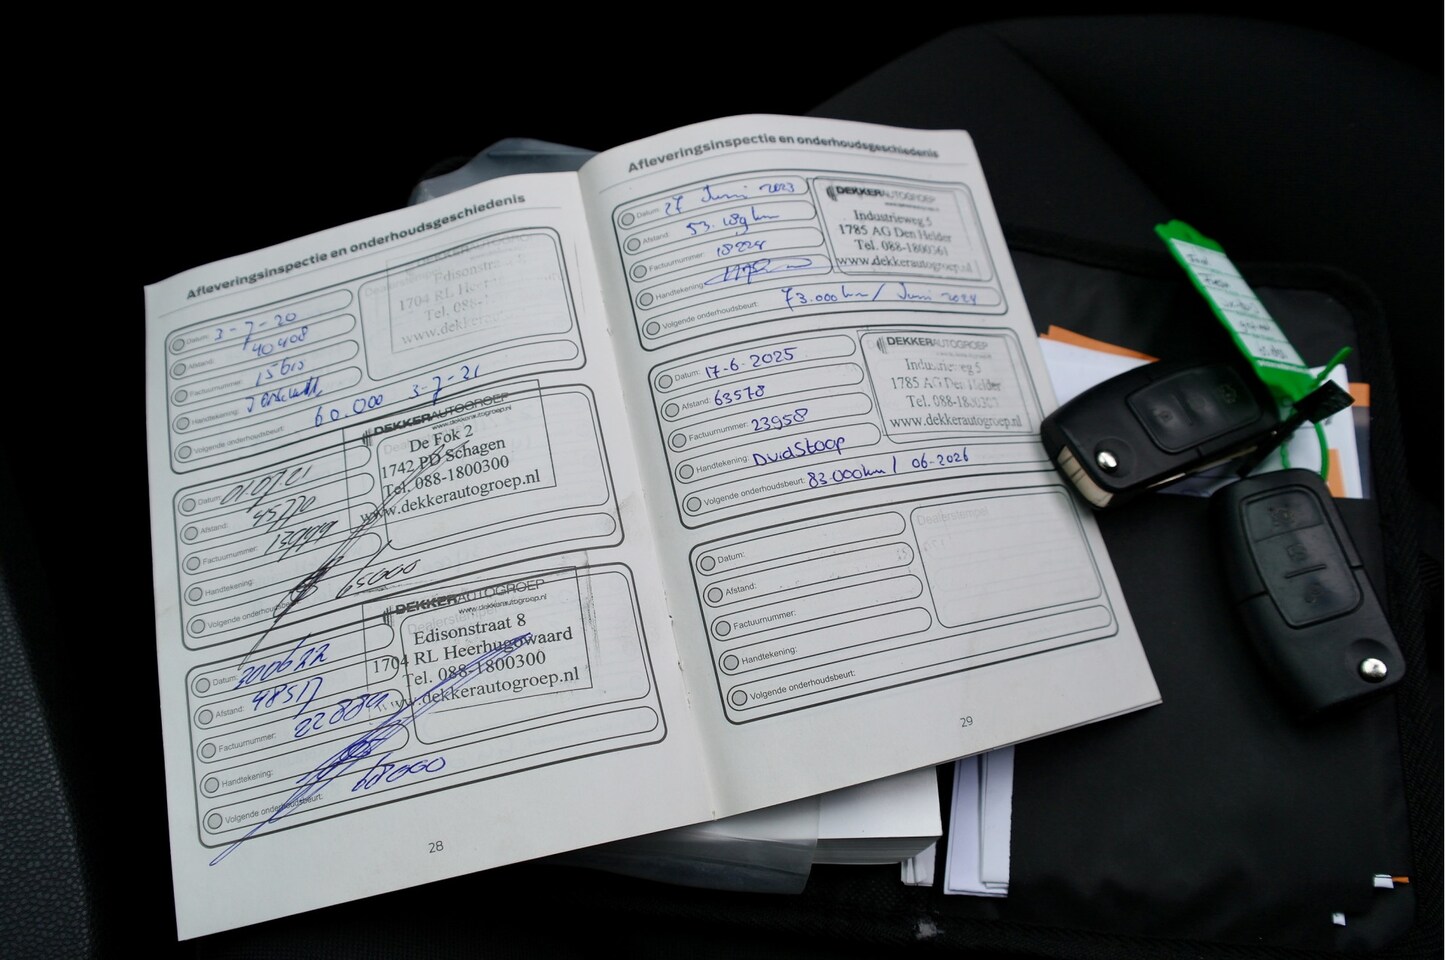 Afleveringsinspectie en onderhoudsgeschiedenis
Datum: 3-7-20
Afstand: 40408
Factuurnummer: 15613
Handtekening:
Volgende onderhoudsbeurt: 60.000 3-7-21
Edisonstraat 8
1704 RL Heer
Tel. 088-
www.dekker
Datum: 010721
Afstand: 45770
Factuurnummer:
Handtekening:
Volgende onderhoudsbeurt: 65000
DEKKERAUTOGROEP
www.dekkerautogroep.nl
De Fok 2
1742 PD Schagen
Tel. 088-1800300
www.dekkerautogroep.nl
Datum: 200622
Afstand: 48517
Factuurnummer:
Handtekening:
Volgende onderhoudsbeurt: 68000
DEKKERAUTOGROEP
www.dekkerautogroep.nl
Dealerstempel
Edisonstraat 8
1704 RL Heerhugowaard
Tel. 088-1800300
www.dekkerautogroep.nl
28
Afleveringsinspectie en onderhoudsgeschiedenis
Datum: 27 Juni 2023
Afstand: 53.189 km
Factuurnummer: 18224
Handtekening:
Volgende onderhoudsbeurt: 73.000 km / Juni 2024
DEKKERAUTOGROEP
Industrieweg 5
1785 AG Den Helder
Tel. 088-1800361
www.dekkerautogroep.nl
Datum: 17-6-2025
Afstand: 63578
Factuurnummer: 23958
Handtekening:
Volgende onderhoudsbeurt: 83.000km / 06-2026
DEKKERAUTOGROEP
Industrieweg 5
1785 AG Den Helder
Tel. 088-
www.dekkerautogroep.nl
Datum:
Afstand:
Factuurnummer:
Handtekening:
Volgende onderhoudsbeurt:
Dealerstempel
29